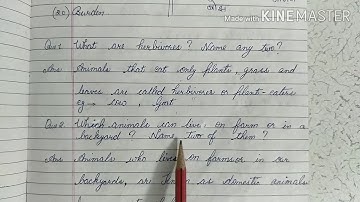 (20) Burden
Made with KINEMASTER
Que 1. What are herbivores? Name any two?
Ans Animals that eat only plants, grass and
leaves are called herbivores or plant-eaters
eg → Goat
Que 2. Which animals can live on farm or in a
backyard? Name two of them?
Ans Animals who lives on farms or in our
backyards, are as domestic animals